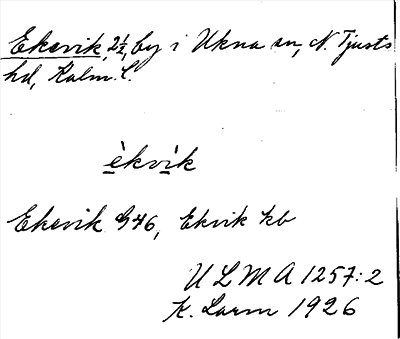 Ekevik, 2 1/2, by i Ukna sn, N. Tjusts
hd, Kalm. l.
èkvìk
Ekevik G 46, Ekvik kb
ULMA 1257:2
K. Larm 1926